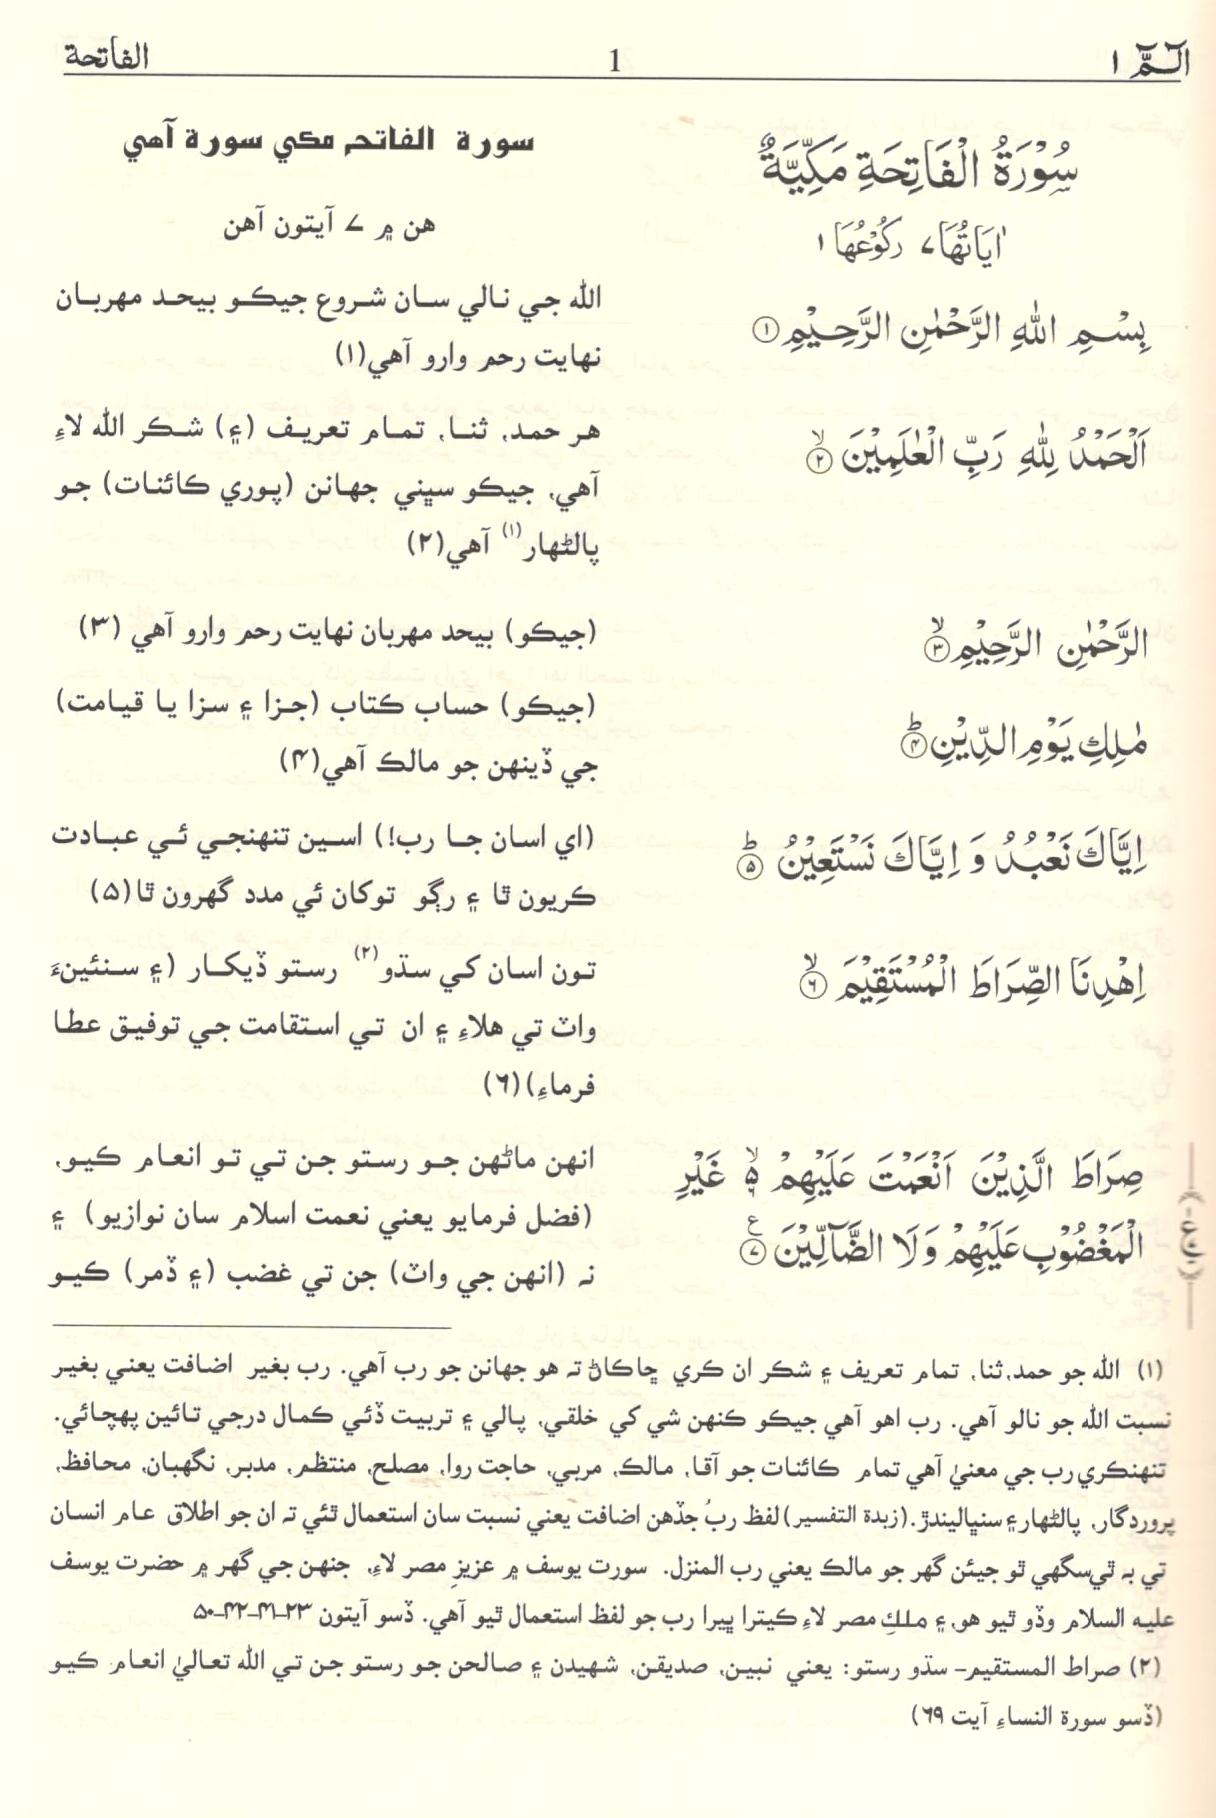 الۗمّۗ ١
1
الفاتحة
سُوْرَةُ الْفَاتِحَةِ مَكِّيَّةٌ
اٰيَاتُهَا ٧ رَكُوْعُهَا ١
بِسْمِ اللّٰهِ الرَّحْمٰنِ الرَّحِيْمِ ١
اَلْحَمْدُ لِلّٰهِ رَبِّ الْعٰلَمِيْنَ ۙ ٢
الرَّحْمٰنِ الرَّحِيْمِ ۙ ٣
مٰلِكِ يَوْمِ الدِّيْنِ ؕ ۴
اِيَّاكَ نَعْبُدُ وَ اِيَّاكَ نَسْتَعِيْنُ ؕ ۵
اِهْدِنَا الصِّرَاطَ الْمُسْتَقِيْمَ ۙ ٦
صِرَاطَ الَّذِيْنَ اَنْعَمْتَ عَلَيْهِمْ ۙ۬ غَيْرِ
الْمَغْضُوْبِ عَلَيْهِمْ وَلَا الضَّآلِّيْنَ ٧ ع
سورة الفاتحہ مڪي سورة آهي
هن ۾ ٧ آيتون آهن
الله جي نالي سان شروع جيڪو بيحد مهربان
نهايت رحم وارو آهي(١)
هر حمد، ثنا، تمام تعريف (۽) شڪر الله لاءِ
آهي، جيڪو سڀني جهانن (پوري ڪائنات) جو
پالڻهار(١) آهي(٢)
(جيڪو) بيحد مهربان نهايت رحم وارو آهي (٣)
(جيڪو) حساب ڪتاب (جزا ۽ سزا يا قيامت)
جي ڏينهن جو مالڪ آهي(۴)
(اي اسان جا رب!) اسين تنهنجي ئي عبادت
ڪريون ٿا ۽ رڳو توکان ئي مدد گهرون ٿا(۵)
تون اسان کي سڌو(٢) رستو ڏيکار (۽ سنئينءَ
واٽ تي هلاءِ ۽ ان تي استقامت جي توفيق عطا
فرماءِ)(٦)
انهن ماڻهن جو رستو جن تي تو انعام ڪيو،
(فضل فرمايو يعني نعمت اسلام سان نوازيو) ۽
نہ (انهن جي واٽ) جن تي غضب (۽ ڏمر) ڪيو
(١) الله جو حمد،ثنا، تمام تعريف ۽ شڪر ان ڪري ڇاڪاڻ تہ هو جهانن جو رب آهي. رب بغير اضافت يعني بغير
نسبت الله جو نالو آهي. رب اهو آهي جيڪو ڪنهن شي کي خلقي، پالي ۽ تربيت ڏئي ڪمال درجي تائين پهچائي.
تنهنڪري رب جي معنيٰ آهي تمام ڪائنات جو آقا، مالڪ، مربي، حاجت روا، مصلح، منتظم، مدبر، نگهبان، محافظ،
پروردگار، پالڻهار۽ سنڀاليندڙ.(زبدة التفسير)لفظ ربُ جڏهن اضافت يعني نسبت سان استعمال ٿئي تہ ان جو اطلاق عام انسان
تي بہ ٿي سگهي ٿو جيئن گهر جو مالڪ يعني رب المنزل. سورت يوسف ۾ عزيزِ مصر لاءِ، جنهن جي گهر ۾ حضرت يوسف
عليه السلام وڏو ٿيو هو، ۽ ملڪِ مصر لاءِ ڪيترا ڀيرا رب جو لفظ استعمال ٿيو آهي. ڏسو آيتون ٢٣-۴١-۴٢-۵٠
(٢) صراط المستقيم- سڌو رستو: يعني نبين، صديقن، شهيدن ۽ صالحن جو رستو جن تي الله تعاليٰ انعام ڪيو
(ڏسو سورة النساءِ آيت ٦٩)